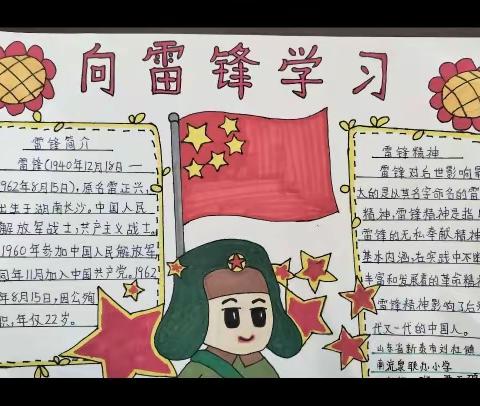 向雷锋学习
雷锋简介
雷锋(1940年12月18日—
1962年8月15日),原名雷正兴,
出生于湖南长沙。中国人民
解放军战士,共产主义战士。
1960年参加中国人民解放军
同年11月加入中国共产党。1962
年8月15日,因公殉
职,年仅22岁。
雷锋精神
雷锋对后世影响最
大的是以其名字命名的雷
精神,雷锋精神是指
雷锋的无私奉献精神
基本内涵,在实践中不断
丰富和发展着的革命精
雷锋精神影响了后
代又一代的中国人。
山东省新泰市刘杜镇
南流泉联办小学